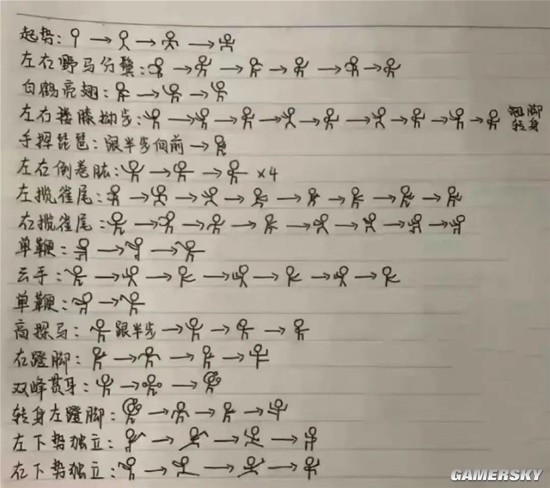 起势:
左右野马分鬃:
白鹤亮翅:
左右搂膝拗步: 翘脚转身
手挥琵琶: 跟半步向前
左右倒卷肱: ×4
左揽雀尾:
右揽雀尾:
单鞭:
云手:
单鞭:
高探马: 跟半步
右蹬脚:
双峰贯耳:
转身左蹬脚:
左下势独立:
右下势独立:
GAMERSKY